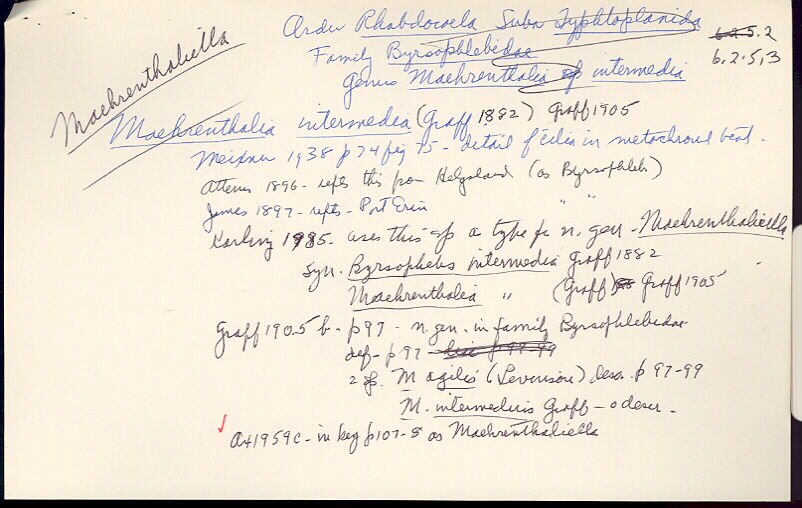 Order Rhabdocoela Subo Typhloplanida
6.2.5.2
Family Byrsophlebidae
6.2.5.3
Genus Maehrenthalia sp intermedia
Maehrenthaliella
Maehrenthalia intermedia (Graff 1882) Graff 1905
Meixner 1938 p 74 fig 75 - detail f cilia in metachronal beat.
Attems 1896 - repts this from Helgoland (as Byrsophlebs)
James 1897 - repts - Port Erin " "
Karling 1985 - uses this sp a type fr n. gen - Maehrenthaliella
Syn. Byrsophlebs intermedia Graff 1882
Maehrenthalia " (Graff) Graff 1905
Graff 1905 b - p 97 - n. gen. in family Byrsophlebidae
def - p 97 - disc p 97-99
2 sp. M agilis (Levinsen) descr. p 97-99
M. intermedius Graff - o descr -
Ax 1959c - in key p 107-8 as Maehrenthaliella